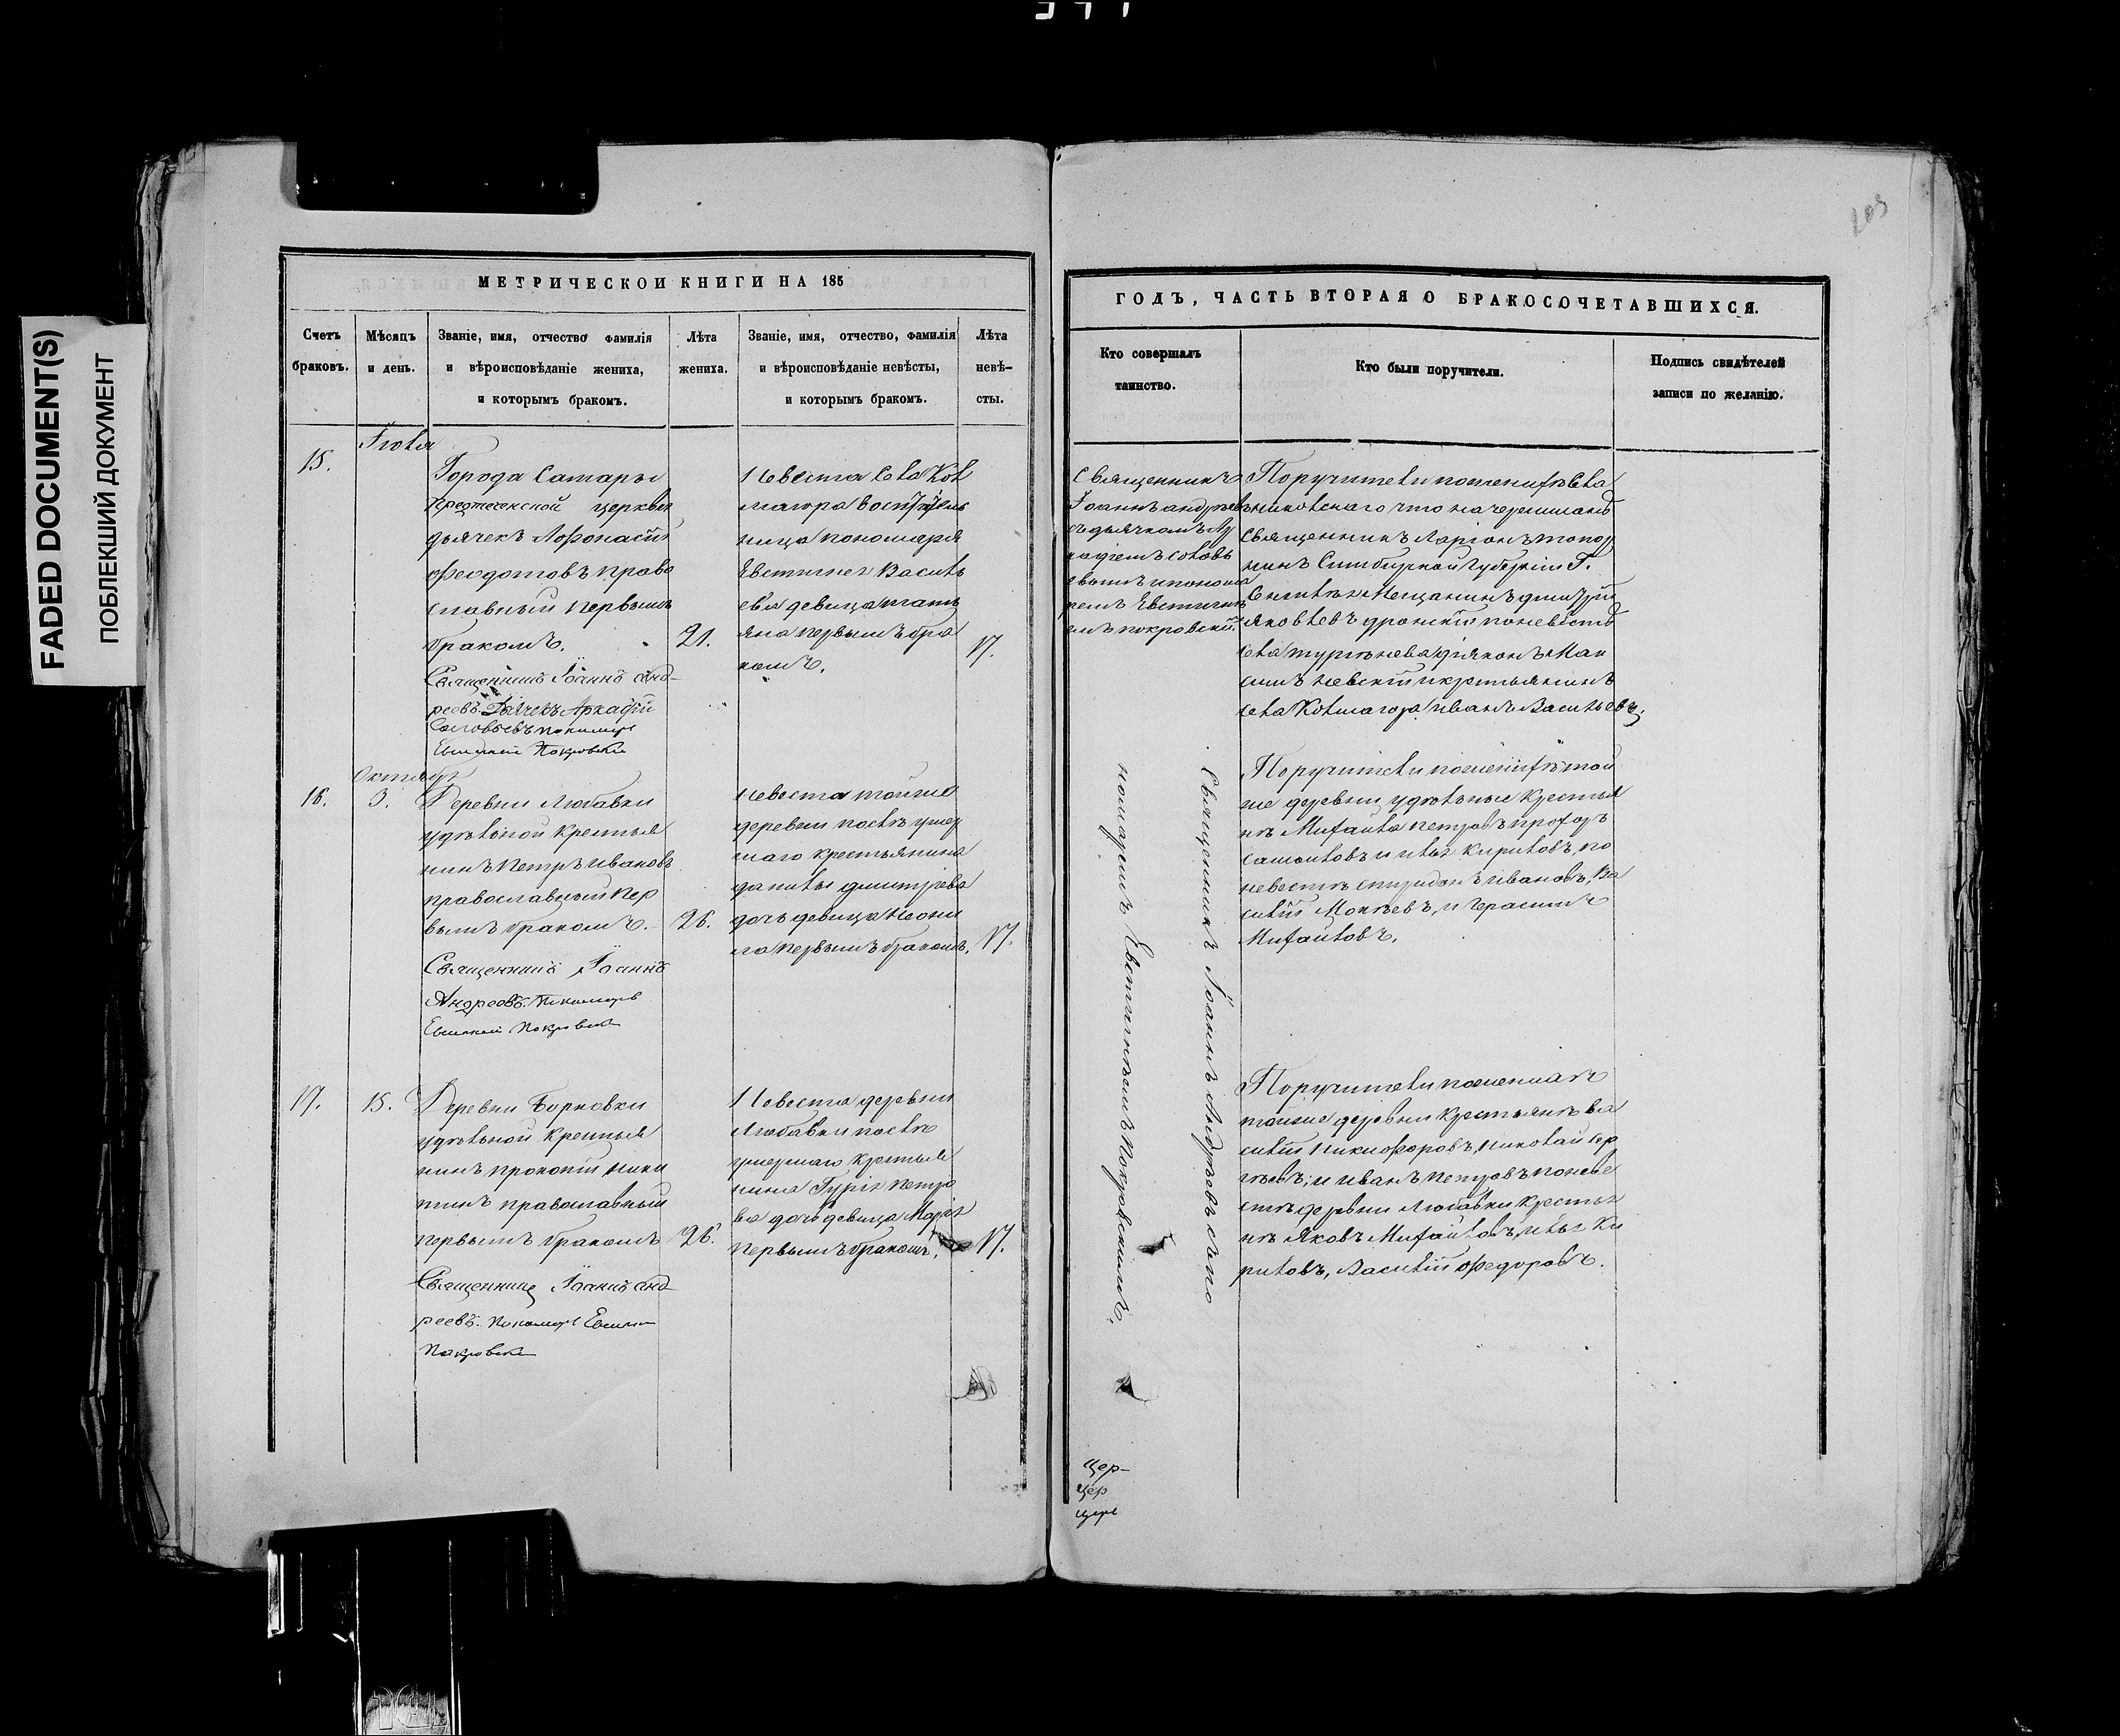 FADED DOCUMENT(S)
ПОБЛЕКШИЙ ДОКУМЕНТ
203
МЕТРИЧЕСКОЙ КНИГИ НА 185
Счетъ браковъ.
Мѣсяцъ и день.
Званіе, имя, отчество фамилія и вѣроисповѣданіе жениха, и которымъ бракомъ.
Лѣта жениха.
Званіе, имя, отчество, фамилія и вѣроисповѣданіе невѣсты, и которымъ бракомъ.
Лѣта невѣ-сты.
Іюля
15.
Города Самары
церкви
дьячекъ Афонасій
Феодотовъ право
славный первымъ
бракомъ.
21.
Священникъ Іоаннъ Анд-
реевъ. Дьячекъ Аркадій
Соловьевъ пономарь
Покровскій
Невеста села Кол
магора
ница пономаря
Евстигнея Василь
ева девица Тать
яна первымъ бра
комъ.
17.
Октября
16.
3.
Деревни Любавки
удѣльной крестья
нинъ Петръ Ивановъ
православный пер
вымъ бракомъ.
26.
Священникъ Іоаннъ
Андреевъ. Пономарь
Покровскій
Невеста тойже
деревни послѣ умер
шаго крестьянина
Данилы Дмитрева
дочь девица Неони
ла первымъ бракомъ.
17.
17.
15.
Деревни Борковки
удѣльной крестья
нинъ Прокопій Ники
тинъ православный
первымъ бракомъ
26.
Священникъ Іоаннъ Анд
реевъ. Пономарь
Покровскій
Невеста деревни
Любавки послѣ
умершаго крестья
нина Гурія Петро
ва дочь девица Марія
первымъ бракомъ.
17.
ГОДЪ, ЧАСТЬ ВТОРАЯ О БРАКОСОЧЕТАВШИХСЯ.
Кто совершалъ таинство.
Кто были поручители.
Подпись свидѣтелей записи по желанію.
Священникъ
Іоаннъ Андреевъ
съ дьячкомъ Ар
кадіемъ Соловь
евымъ и понома
ремъ Евстигне
емъ Покровскимъ.
Поручители по женихѣ села
никольскаго что на черемшанѣ
Священникъ Ларіонъ Топор
нинъ Симбирской Губерніи Г.
Сенгилѣя Мещанинъ Дмитрій
Яковлевъ по невѣстѣ
села Тургенева діяконъ Мак
симъ Невскій и крестьянинъ
села Колмагора Иванъ Васильевъ.
Поручители по женихѣ той
же деревни удѣльные крестья
нѣ Михайла Петровъ, Прохоръ
Самойловъ и Илья Кириловъ, по
невестѣ Спиридонъ Ивановъ, Ва
силій Мокѣевъ, и Герасимъ
Михайловъ.
Священникъ Іоаннъ Андреевъ съ по
номаремъ Евстигнѣемъ Покровскимъ.
Поручители по женихѣ
тойже деревни крестьянѣ Ва
силій Никифоровъ, Николай Сер
гѣевъ, и Иванъ Петровъ по неве
стѣ деревни Любавки крестья
нѣ Яковъ Михайловъ, Илья Ки
риловъ, Василій Федоровъ.
Цер-
Цер